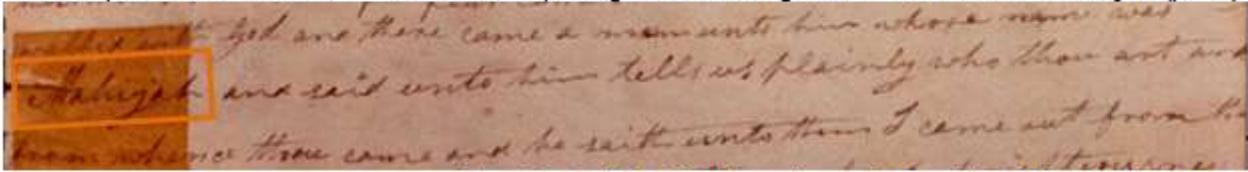 walked with God and there came a man unto him whose name was
Mahijah and said unto him tell us plainly who thou art and
from whence thou came and he saith unto them I came out from the